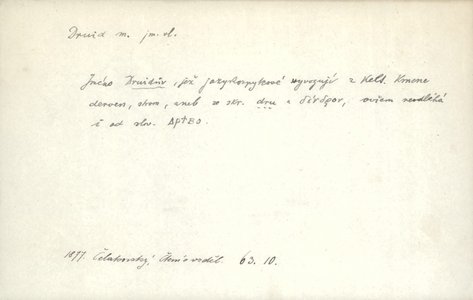 Druid m. jm. vl.
Jméno Druidův, jež jazykozpytcové vyvozují z kelt. kmene
derven, strom, aneb ze skr. dru a δένδρον, ovšem neodléhá
i od slov. дрѣво.
1877. Čelakovský, Čtenío vzděl. 63. 10.